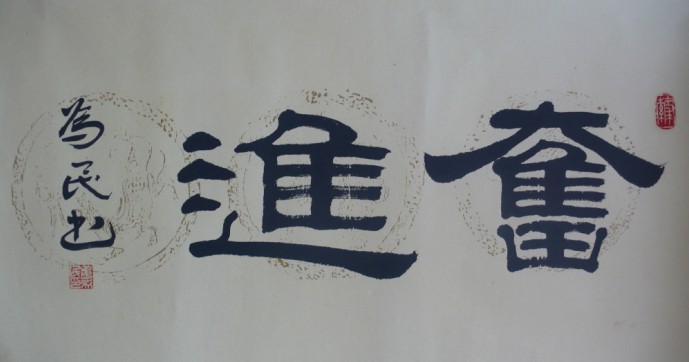 奮進
為民书